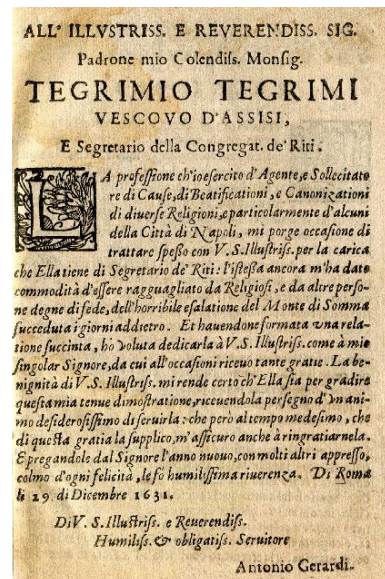 ALL' ILLVSTRISS. E REVERENDISS. SIG.
Padrone mio Colendiss. Monsig.
TEGRIMIO TEGRIMI
VESCOVO D'ASSISI,
E Segretario della Congregat. de' Riti.
LA professione ch'io esercito d'Agente, e Sollecitato
re di Cause, di Beatificationi, e Canonizationi
di diuerse Religioni, e particolarmente d'alcuni
della Città di Napoli, mi porge occasione di
trattare spesso con V. S. Illustriss. per la carica
che Ella tiene di Segretario de' Riti: l'istessa ancora m'ha dato
commodità d'essere ragguagliato da Religiosi, e da altre perso-
ne degne di fede, dell'horribile esalatione del Monte di Somma
succeduta i giorni addietro. Et hauendone formata vna rela-
tione succinta, hò voluta dedicarla à V. S. Illustriss. come à mio
singolar Signore, da cui all'occasioni riceuo tante gratie. La be-
nignità di V. S. Illustriss. mi rende certo ch'Ella sia per gradire
questa mia tenue dimostratione, riceuendola per segno d'vn ani-
mo desiderosissimo di seruirla: che però al tempo medesimo, che
di questa gratia la supplico, m'assicuro anche à ringratiarnela.
E pregandole dal Signore l'anno nuouo, con molti altri appresso,
colmo d'ogni felicità, le fò humilissima riuerenza. Di Roma
li 29. di Dicembre 1631.
Di V. S. Illustriss. e Reuerendiss.
Humiliss. & obligatiss. Seruitore
Antonio Gerardi.